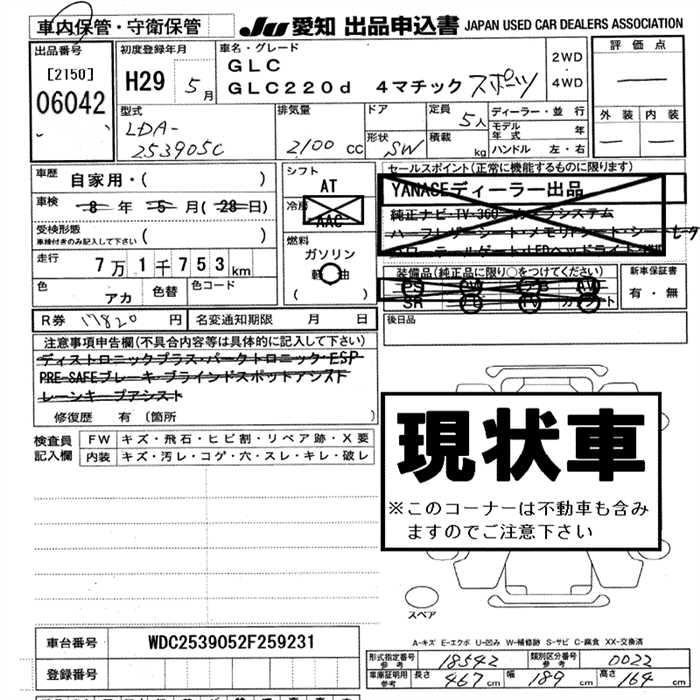 車内保管・守衛保管
JU 愛知 出品申込書 JAPAN USED CAR DEALERS ASSOCIATION
出品番号
[2150]
06042
初度登録年月
H29 5月
車名・グレード
GLC
GLC220d 4マチック スポーツ
2WD
4WD
評価点
外装 内装
型式
LDA-
253905C
排気量
2100 cc
ドア
形状 SW
定員 5人
積載 kg
ディーラー・並行
モデル年式 年
ハンドル 左・右
車歴 自家用・( )
車検 8年 5月(28日)
受検形態
車検付きのみ記入して下さい ( )
走行 7万1千753km
色 アカ
色替
色コード
シフト
AT
冷房
AAC
燃料
ガソリン
軽油
( )
セールスポイント(正常に機能するものに限ります)
YANASEディーラー出品
純正ナビ・TV・360°カメラシステム
ハーフレザーシート・メモリーシート・シートヒータ
パワーテールゲート・LEDヘッドライト
装備品(純正品に限り○をつけてください)
PS
SR
新車保証書
有・無
後日品
R券 17820円
名変通知期限 月 日
注意事項申告欄(不具合内容等は具体的に記入して下さい)
ディストロニックプラス・パークトロニック・ESP
PRE-SAFEブレーキ・ブラインドスポットアシスト
レーンキープアシスト
修復歴 有 (箇所 )
検査員記入欄
FW キズ・飛石・ヒビ割・リペア跡・X要
内装 キズ・汚レ・コゲ・穴・スレ・キレ・破レ
現状車
※このコーナーは不動車も含み
ますのでご注意下さい
スペア
A-キズ E-エクボ U-凹み W-補修跡 S-サビ C-腐食 XX-交換済
車台番号 WDC2539052F259231
登録番号
形式指定番号 参考 18542
類別区分番号 参考 0022
車庫証明用 参考 長さ 467cm 幅 189cm 高さ 164cm